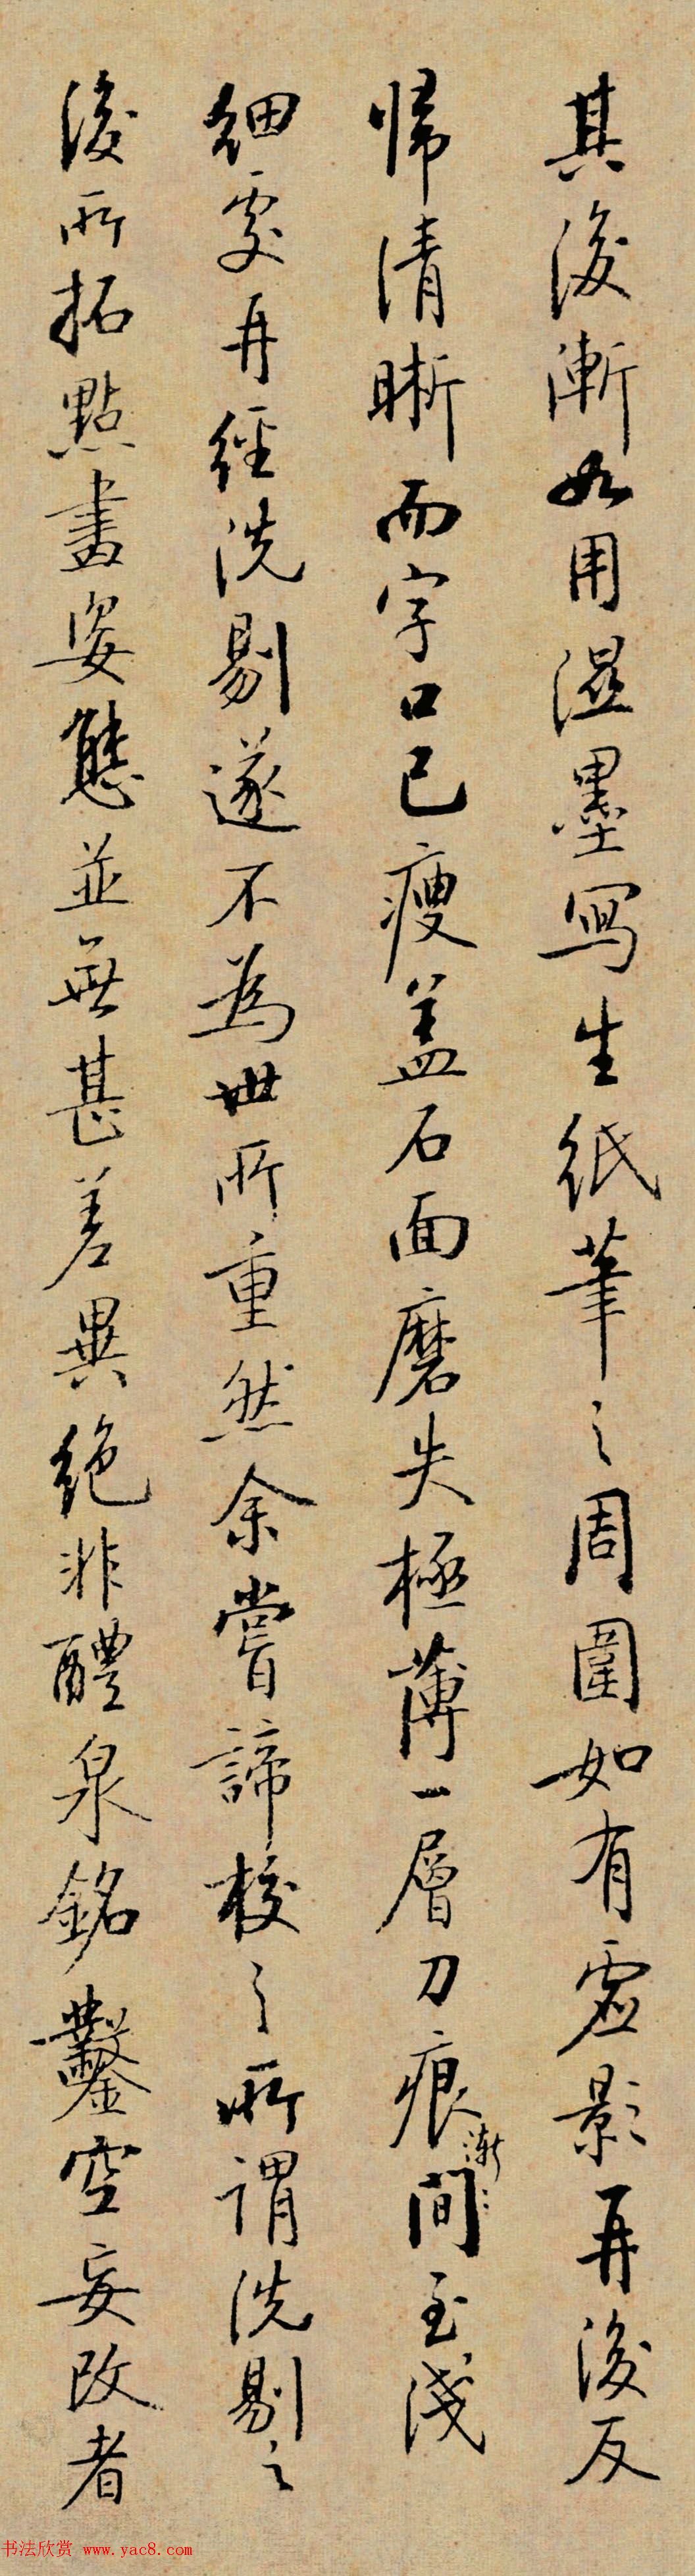 其後漸如用濕墨寫生紙筆之周圍如有虛影再後反
歸清晰而字口已瘦盖石面磨失極薄一層刀痕漸〻間至淺
細處再經洗剔遂不為世所重然余嘗諦校之所謂洗剔之
後所拓點畫姿態並無甚差異絕非醴泉銘鑿空妄改者
书法欣赏 www.yac8.com